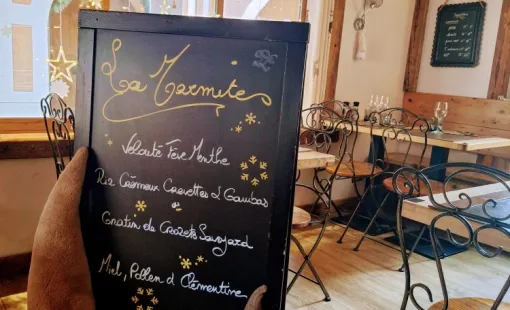 La Marmite
Velouté Fève Menthe
Riz Crémeux Crevettes & Gambas
Gratin de Crozets Savoyard
Miel, Pollen & Clémentine